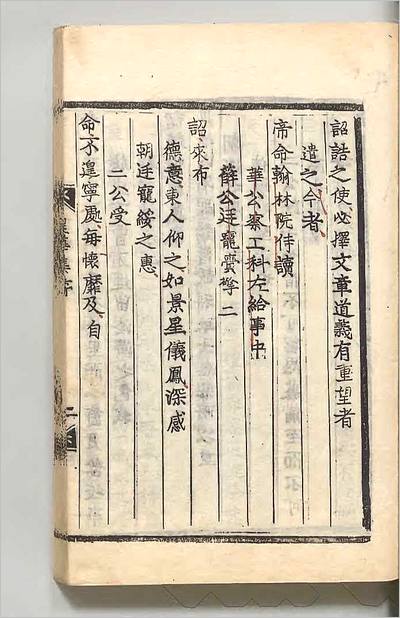 詔誥之使必擇文章道義有重望者
遣之今者
帝命翰林院侍讀
華公察工科左給事中
薛公廷寵齎擎二
詔來布
德意東人仰之如景星儀鳳深感
朝廷寵綏之惠
二公受
命不遑寧處每懷靡及自